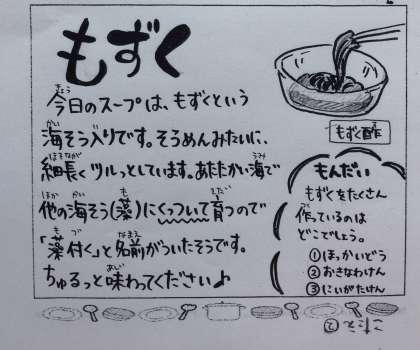 もずく
今日のスープは、もずくという
海そう入りです。そうめんみたいに、
細長くツルっとしています。あたたかい海で
他の海そう(藻)にくっついて育つので
「藻付く」と名前がついたそうです。
ちゅるっと味わってください♪
もずく酢
もんだい
もずくをたくさん
作っているのは
どこでしょう。
①ほっかいどう
②おきなわけん
③にいがたけん
こたえ ②